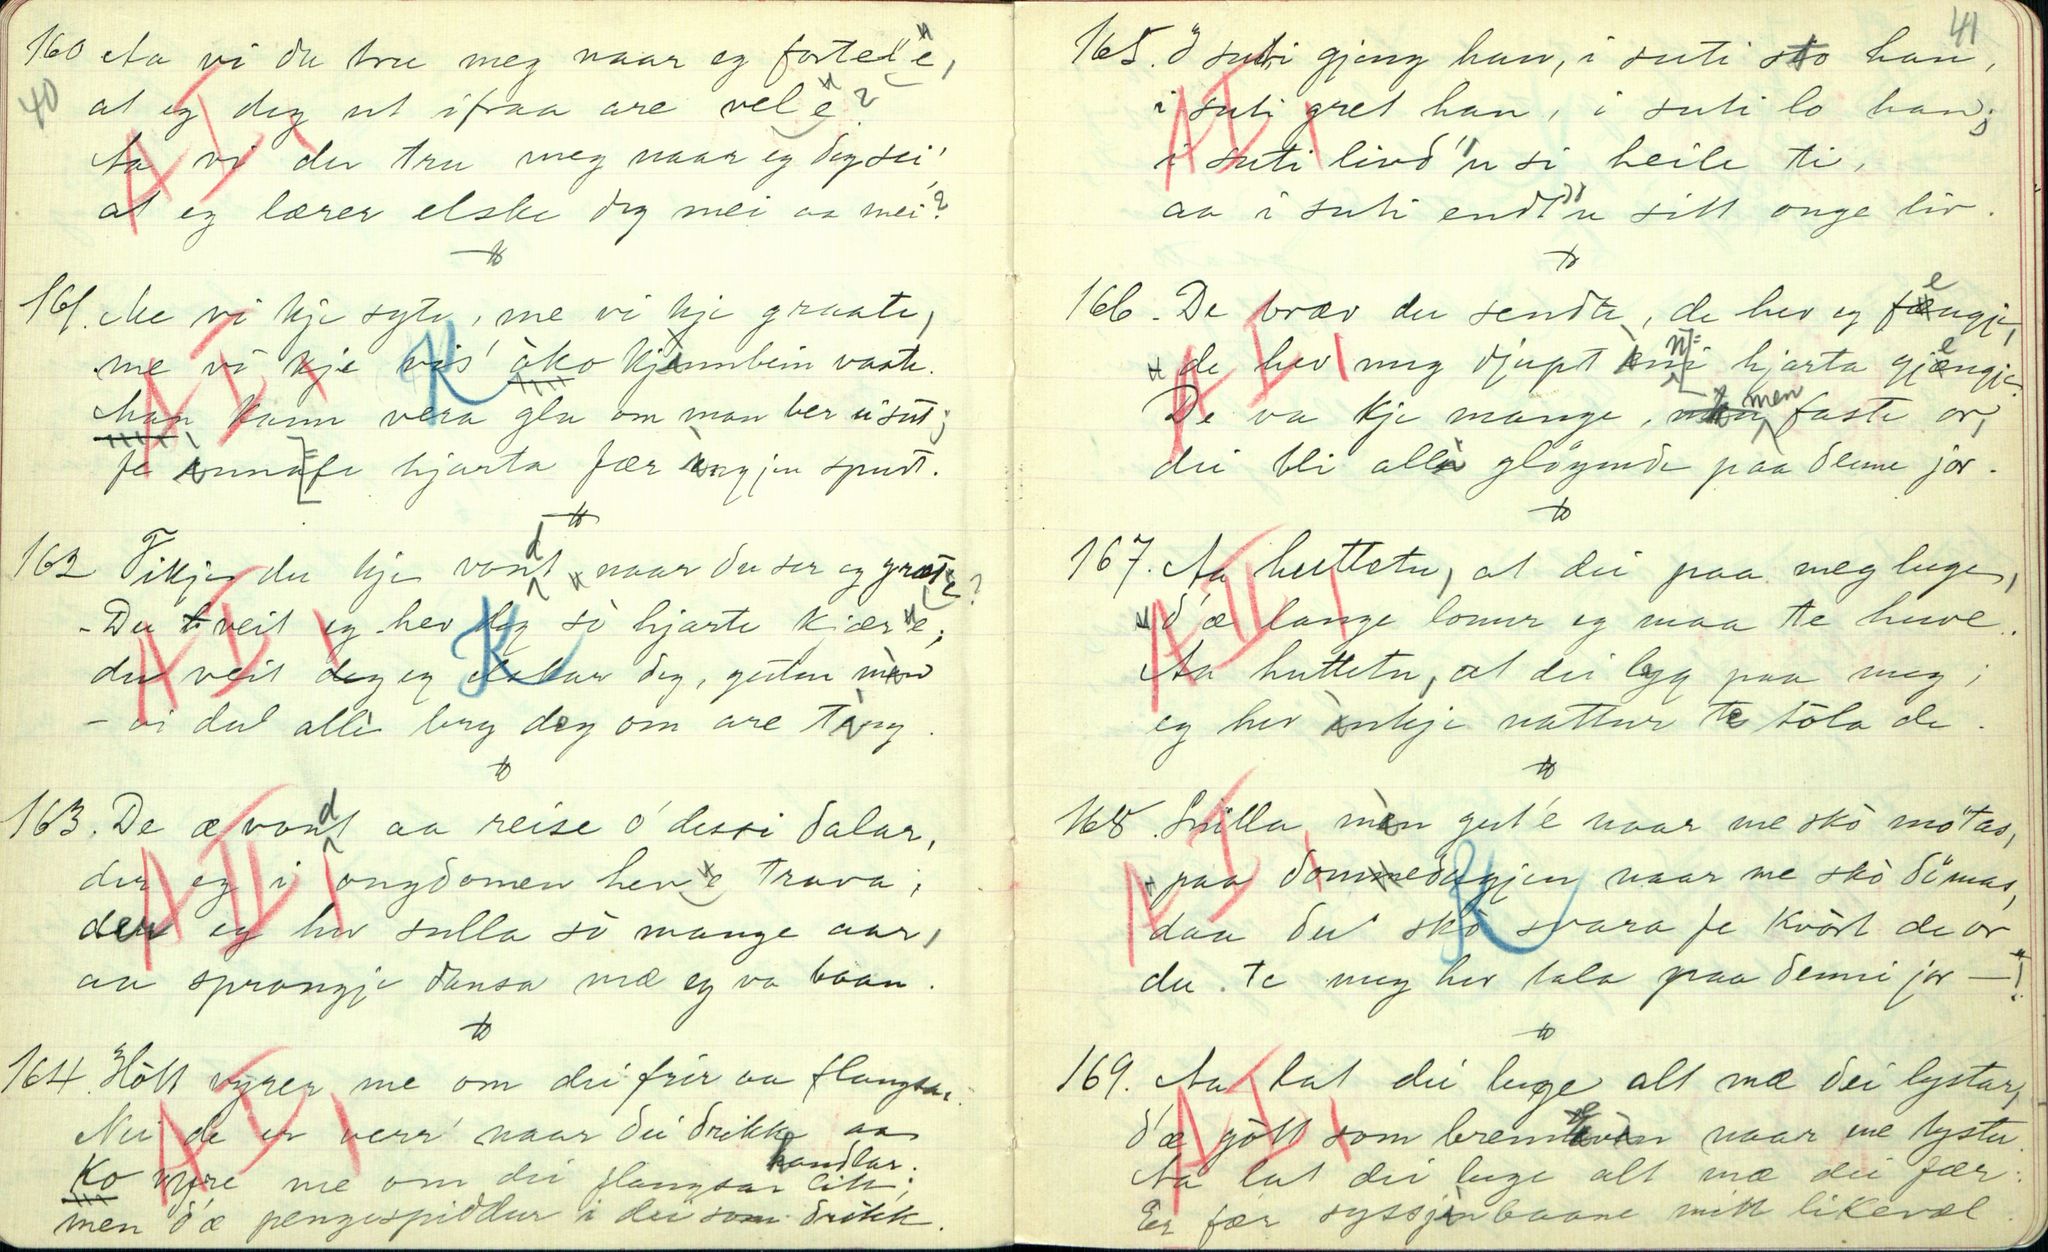 40
160 Aa vi du tru meg naar eg fortel'e,
at eg deg ut ifraa are vel'e?
Aa vi du tru meg naar eg deg sei,
at eg lærer elske deg mei aa mei?
161. Me vi kje syte, me vi kje graate,
me vi kje vis' òko kjinnbein vaate.
Man kann vera gla om man ber ei sut;
fe innafe hjarta fær ingjen spurt.
162 Tikjer du kje vondt naar du ser eg græt'e?
- Du veit eg hev deg sò hjarte kjær'e;
du veit eg elskar deg, guten min
- vi dul alli bry deg om are ting.
163. De æ vondt aa reise o' dessi dalar,
der eg i ongdomen hev'e trava;
der eg hev sulla sò mange aar,
aa sprongje dansa mæ eg va baan.
164. Hòtt vyrer me om dei frir aa flangsar.
Nei de er verr' naar dei drikk aa handlar.
Ko vyre me om dei flangsar litt;
men d'æ pengespiddur i dei som drikk.
41
165. I suti gjeng han, i suti sto han,
i suti gret han, i suti lo han;
i suti livd'u si heile ti,
aa i suti endt'u sitt onge liv.
166. De bræv du sendte, de hev eg fengje,
de hev meg djupt inni hjarta gjengje.
De va kje mange, men faste or,
dei bli alli gløymde paa denne jor.
167. Aa huttetu, at dei paa meg luge,
d'æ lange lomur eg maa te huve.
Aa huttetu, at dei lyg paa meg;
eg hev inkje nattur te tòla de.
168. Snilla min gut'e naar me skò møtas,
paa dommedagjen naar me skò dømas,
daa du skò svara fe kvòrt de or
du te meg hev tala paa denni jor —!
169. Aa lat dei luge alt mæ dei lystar,
d'æ gòtt som brennevin naar me tystu.
Aa lat dei luge alt mæ dei fær:
Eg fær syssjinbaane mitt likevæl.